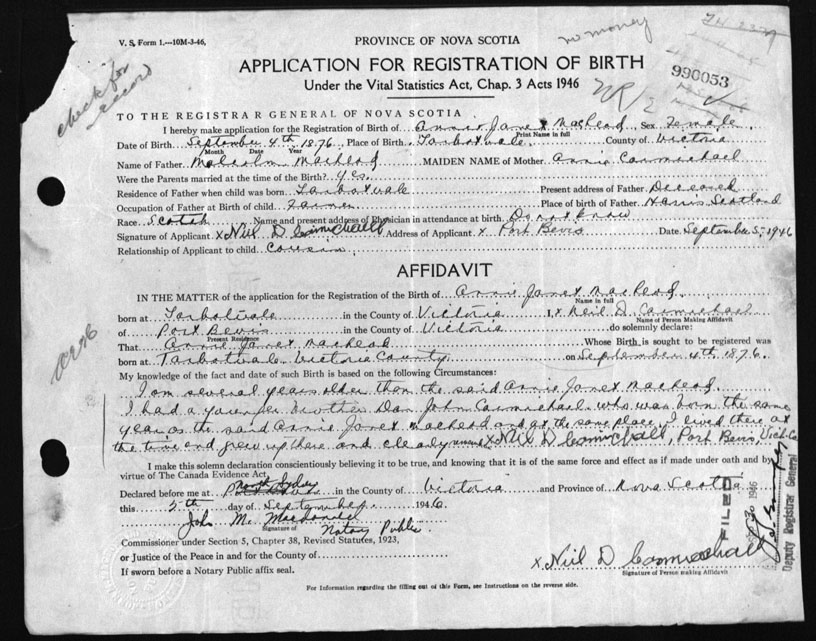 V. S. Form 1.—10M-3-46.
no money
PROVINCE OF NOVA SCOTIA
APPLICATION FOR REGISTRATION OF BIRTH
Under the Vital Statistics Act, Chap. 3 Acts 1946
990053
check for
record
TO THE REGISTRAR GENERAL OF NOVA SCOTIA
I hereby make application for the Registration of Birth of Annie Janet MacLeod Sex Female
Print Name in full
Date of Birth September 4th 1876 Place of Birth Tarbotvale County of Victoria
Month Date Year
Name of Father Malcolm MacLeod MAIDEN NAME of Mother Annie Carmichael
Were the Parents married at the time of the Birth? Yes.
Residence of Father when child was born Tarbotvale Present address of Father Deceased
Occupation of Father at Birth of child Farmer Place of birth of Father Harris Scotland
Race Scotch Name and present address of Physician in attendance at birth Do not know
Signature of Applicant x Neil D Carmichall Address of Applicant x Port Bevis Date September 5, 1946
Relationship of Applicant to child Cousin
AFFIDAVIT
IN THE MATTER of the application for the Registration of the Birth of Annie Janet MacLeod
Name in full
born at Tarbotvale in the County of Victoria I, x Neil D Carmichael
Name of Person Making Affidavit
of Port Bevis in the County of Victoria do solemnly declare:
Present Residence
That Annie Janet MacLeod Whose Birth is sought to be registered was
born at Tarbotvale Victoria County on September 4th 1876.
My knowledge of the fact and date of such Birth is based on the following Circumstances:
I am several years older than the said Annie Janet MacLeod.
I had a younger brother Dan John Carmichael who was born the same
year as the said Annie Janet MacLeod and at the same place. I lived there at
the time and grew up there and clearly x Neil D Carmichall, Port Bevis, Vict. Co.
I make this solemn declaration conscientiously believing it to be true, and knowing that it is of the same force and effect as if made under oath and by
virtue of The Canada Evidence Act.
North Sydney
Declared before me at Port Bevis in the County of Victoria and Province of Nova Scotia
this 5th day of September 1946
John M. Macdonald
Notary Public.
Signature of
Commissioner under Section 5, Chapter 38, Revised Statutes, 1923,
or Justice of the Peace in and for the County of
If sworn before a Notary Public affix seal.
x Neil D Carmichall
Signature of Person making Affidavit
FILED
1946
Deputy Registrar General
For Information regarding the filling out of this Form, see Instructions on the reverse side.